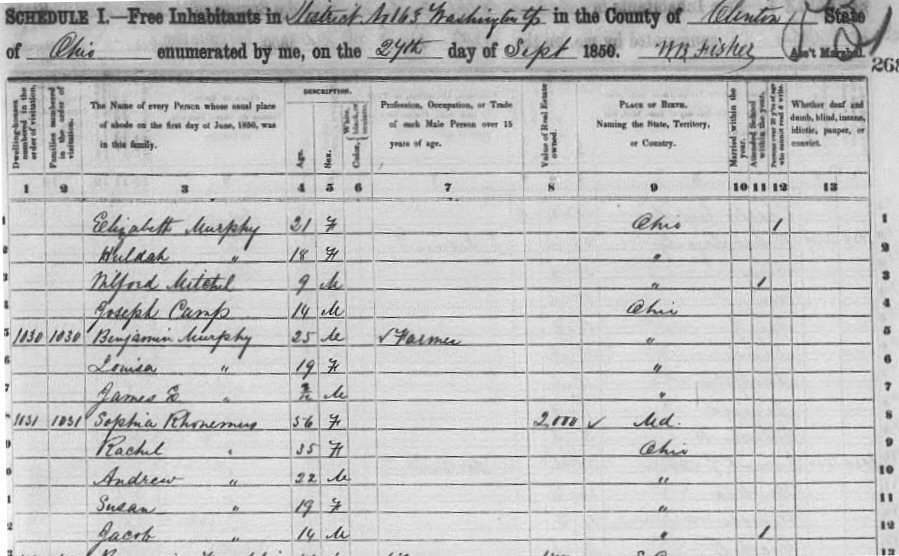 SCHEDULE I.—Free Inhabitants in District No 163 Washington Tp in the County of Clinton State
of Ohio enumerated by me, on the 27th day of Sept 1850. W B Fisher Ass't Marshal.
268
Dwelling-houses numbered in the order of visitation.
Families numbered in the order of visitation.
The Name of every Person whose usual place of abode on the first day of June, 1850, was in this family.
DESCRIPTION.
Age.
Sex.
Color, White, black, or mulatto.
Profession, Occupation, or Trade of each Male Person over 15 years of age.
Value of Real Estate owned.
PLACE OF BIRTH. Naming the State, Territory, or Country.
Married within the year.
Attended School within the year.
Persons over 20 y'rs of age who cannot read & write.
Whether deaf and dumb, blind, insane, idiotic, pauper, or convict.
1 2 3 4 5 6 7 8 9 10 11 12 13
1 Elizabeth Murphy 21 F Ohio 1 1
2 Huldah " 18 F " 2
3 Wilford Mitchel 9 M " 1 3
4 Joseph Camp 14 M Ohio 4
5 1030 1030 Benjamin Murphy 25 M √ Farmer " 5
6 Louisa " 19 F " 6
7 James E " M " 7
8 1031 1031 Sophia Rhonemus 56 F 2,000 √ Md. 8
9 Rachel " 35 F Ohio 9
Andrew " 22 M " 10
1 Susan " 19 F " 11
2 Jacob " 14 M " 1 12
3 13